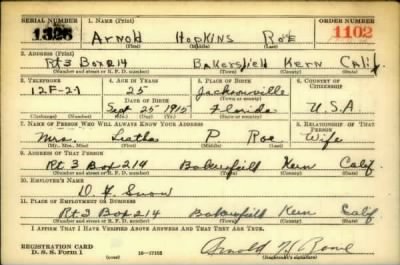 SERIAL NUMBER 1. NAME (Print) ORDER NUMBER
1326 Arnold Hopkins Roe 1102
(First) (Middle) (Last)
2. ADDRESS (Print)
Rt 3 Box 214 Bakersfield Kern Calif
(Number and street or R. F. D. number) (Town) (County) (State)
3. TELEPHONE 4. AGE IN YEARS 5. PLACE OF BIRTH 6. COUNTRY OF CITIZENSHIP
12F-21 25 Jacksonville
DATE OF BIRTH (Town or county)
Sept 25 1915 Florida U.S.A
(Exchange) (Number) (Mo.) (Day) (Yr.) (State or country)
7. NAME OF PERSON WHO WILL ALWAYS KNOW YOUR ADDRESS 8. RELATIONSHIP OF THAT PERSON
Mrs. Leatha P. Roe Wife
(Mr., Mrs., Miss) (First) (Middle) (Last)
9. ADDRESS OF THAT PERSON
Rt 3 Box 214 Bakersfield Kern Calif.
(Number and street or R. F. D. number) (Town) (County) (State)
10. EMPLOYER'S NAME
D. F. Snow
11. PLACE OF EMPLOYMENT OR BUSINESS
Rt 3 Box 214 Bakersfield Kern Calif
(Number and street or R. F. D. number) (Town) (County) (State)
I AFFIRM THAT I HAVE VERIFIED ABOVE ANSWERS AND THAT THEY ARE TRUE.
REGISTRATION CARD
D. S. S. Form 1 (over) 16—17105 Arnold H. Roe
(Registrant's signature)